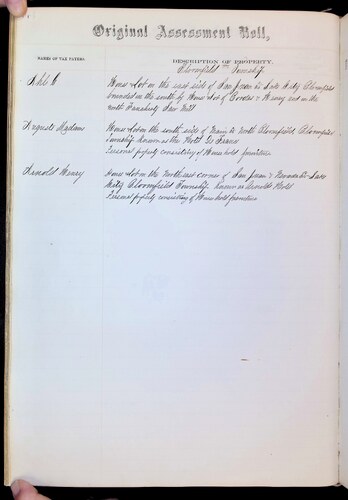 Original Assessment Roll,
NAMES OF TAX PAYERS.
DESCRIPTION OF PROPERTY.
Bloomfield Township
House & Lot on the east side of San Juan & Lake City Bloomfield
bounded on the south by House & Lot of and on the
north Saw Mill
Auguste Madame
House & Lot on the south side of to North Bloomfield Bloomfield
Township known as the Hotel De France
Personal property consisting of Household furniture
Arnold Henry
House & Lot on the North east corner of San Juan & Nevada & Lake
City Bloomfield Township known as Arnolds Hotel
Personal property consisting of Household furniture